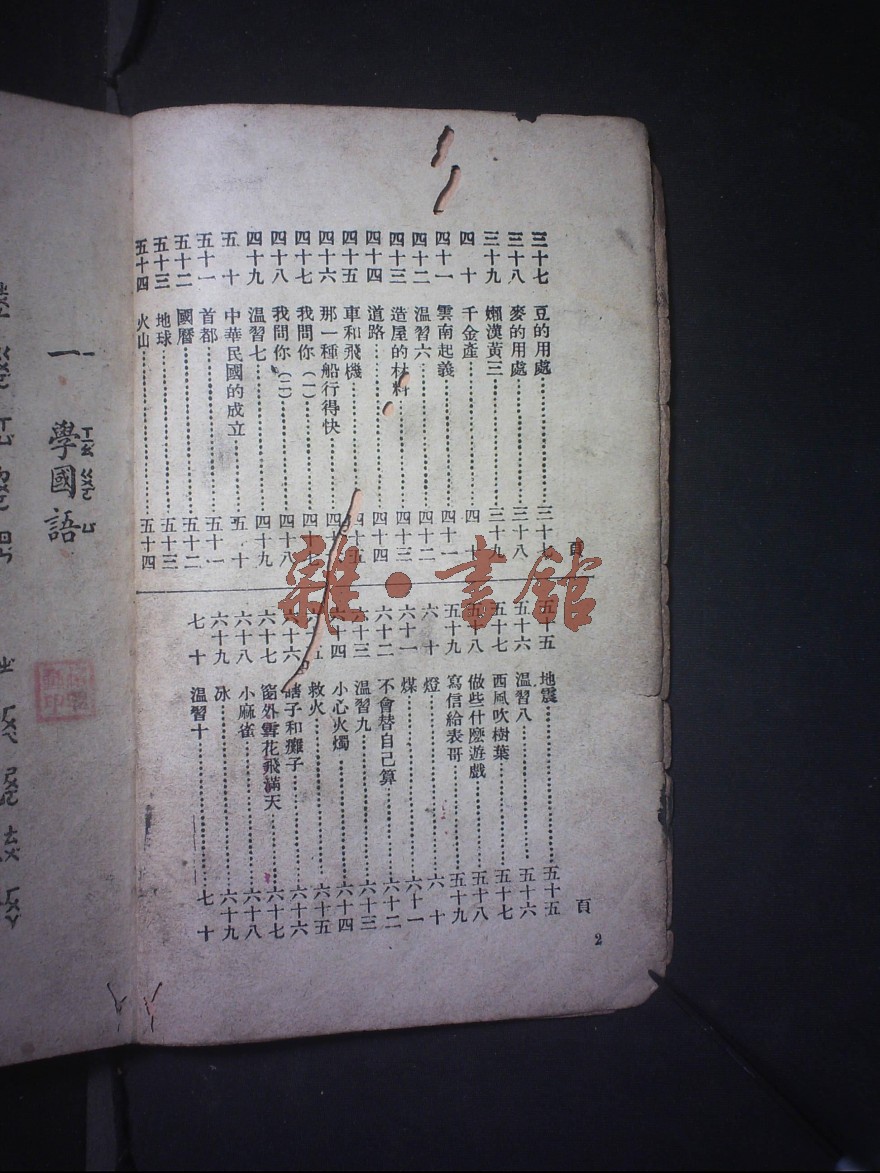 頁
三十七 豆的用處 三十七
三十八 麥的用處 三十八
三十九 嬾漢黃三 三十九
四十 千金產 四十
四十一 雲南起義 四十一
四十二 温習六 四十二
四十三 造屋的材料 四十三
四十四 道路 四十四
四十五 車和飛機 四十五
四十六 那一種船行得快 四十六
四十七 我問你(一) 四十七
四十八 我問你(二) 四十八
四十九 温習七 四十九
五十 中華民國的成立 五十
五十一 首都 五十一
五十二 國曆 五十二
五十三 地球 五十三
五十四 火山 五十四
頁
五十五 地震 五十五
五十六 温習八 五十六
五十七 西風吹樹葉 五十七
五十八 做些什麽遊戲 五十八
五十九 寫信給表哥 五十九
六十 燈 六十
六十一 煤 六十一
六十二 不會替自己算 六十二
六十三 温習九 六十三
六十四 小心火燭 六十四
六十五 救火 六十五
六十六 瞎子和癱子 六十六
六十七 窗外雪花飛滿天 六十七
六十八 小麻雀 六十八
六十九 冰 六十九
七十 温習十 七十
2
雜·書館
一 學國語